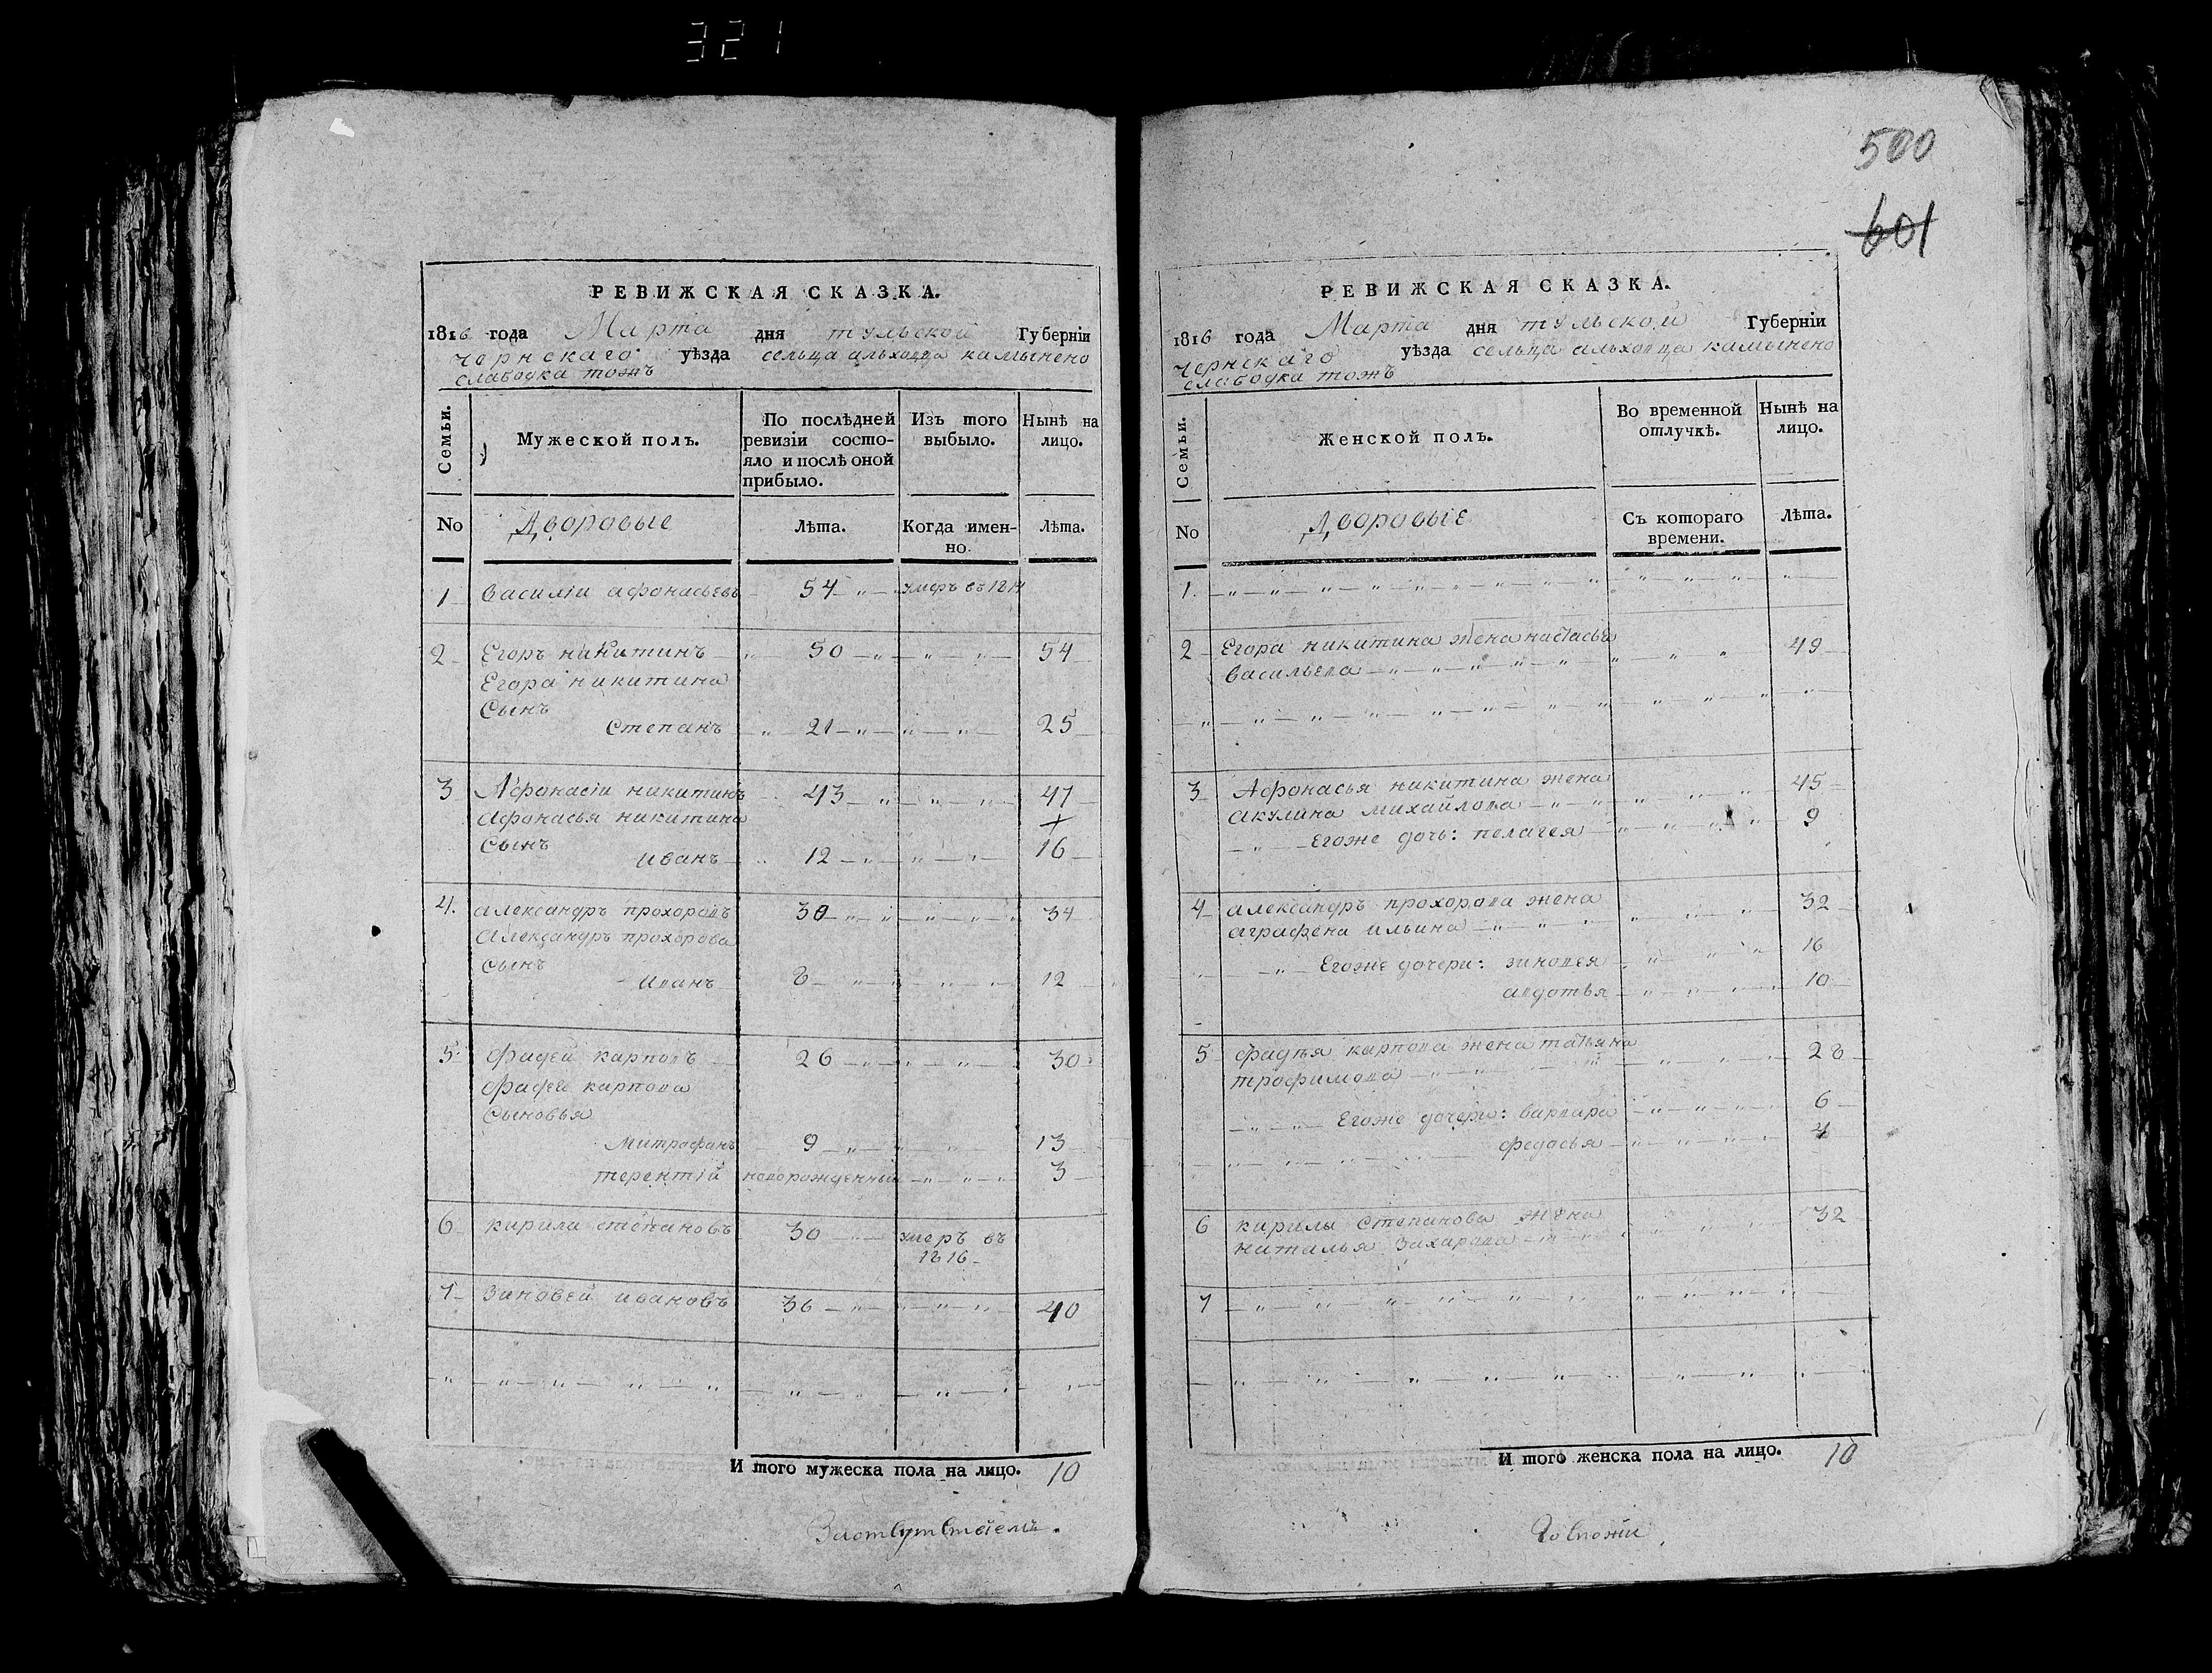 321
500
601
РЕВИЖСКАЯ СКАЗКА.
1816 года Марта дня тульской Губерніи
чернскаго уѣзда сельца альховца камынено
слабодка тожъ
Семьи.
Мужеской полъ.
По послѣдней ревизіи состояло и послѣ оной прибыло.
Изъ того выбыло.
Нынѣ на лицо.
No Дворовые Лѣта. Когда именно. Лѣта.
1 Василіи афонасьевъ 54 умръ въ 1814
2 Егоръ никитинъ 50 54
Егора никитина
Сынъ
Степанъ 21 25
3 Афонасіи никитинъ 43 47
афонасья никитина
Сынъ
иванъ 12 16
4. александръ прохоровъ 30 34
александръ прохорова
Сынъ
иванъ 8 12
5. фадей карповъ 26 30
фадея карпова
Сыновья
Митрофанъ 9 13
терентій новорожденный 3
6 кирила степановъ 30 умеръ въ
1816
7 Зиновей ивановъ 36 40
И того мужеска пола на лицо. 10
РЕВИЖСКАЯ СКАЗКА.
1816 года Марта дня тульской Губерніи
чернскаго уѣзда сельца альховца камынено
слабодка тожъ
Семьи.
Женской полъ.
Во временной отлучкѣ.
Нынѣ на лицо.
No Дворовые Съ котораго времени. Лѣта.
1.
2 Егора никитина жена настасья
васильева 49
3 Афонасья никитина жена 45
акулина михайлова
Егоже дочь: пелагея 9
4 александръ прохорова жена 32
аграфена ильина
Егоже дочери: зиновея 16
авдотья 10
5 фадѣя карпова жена татьяна 28
трофимова
Егоже дочери: варвара 6
федосья 4
6 кирилы степанова жена 32
наталья захарова
7
И того женска пола на лицо. 10